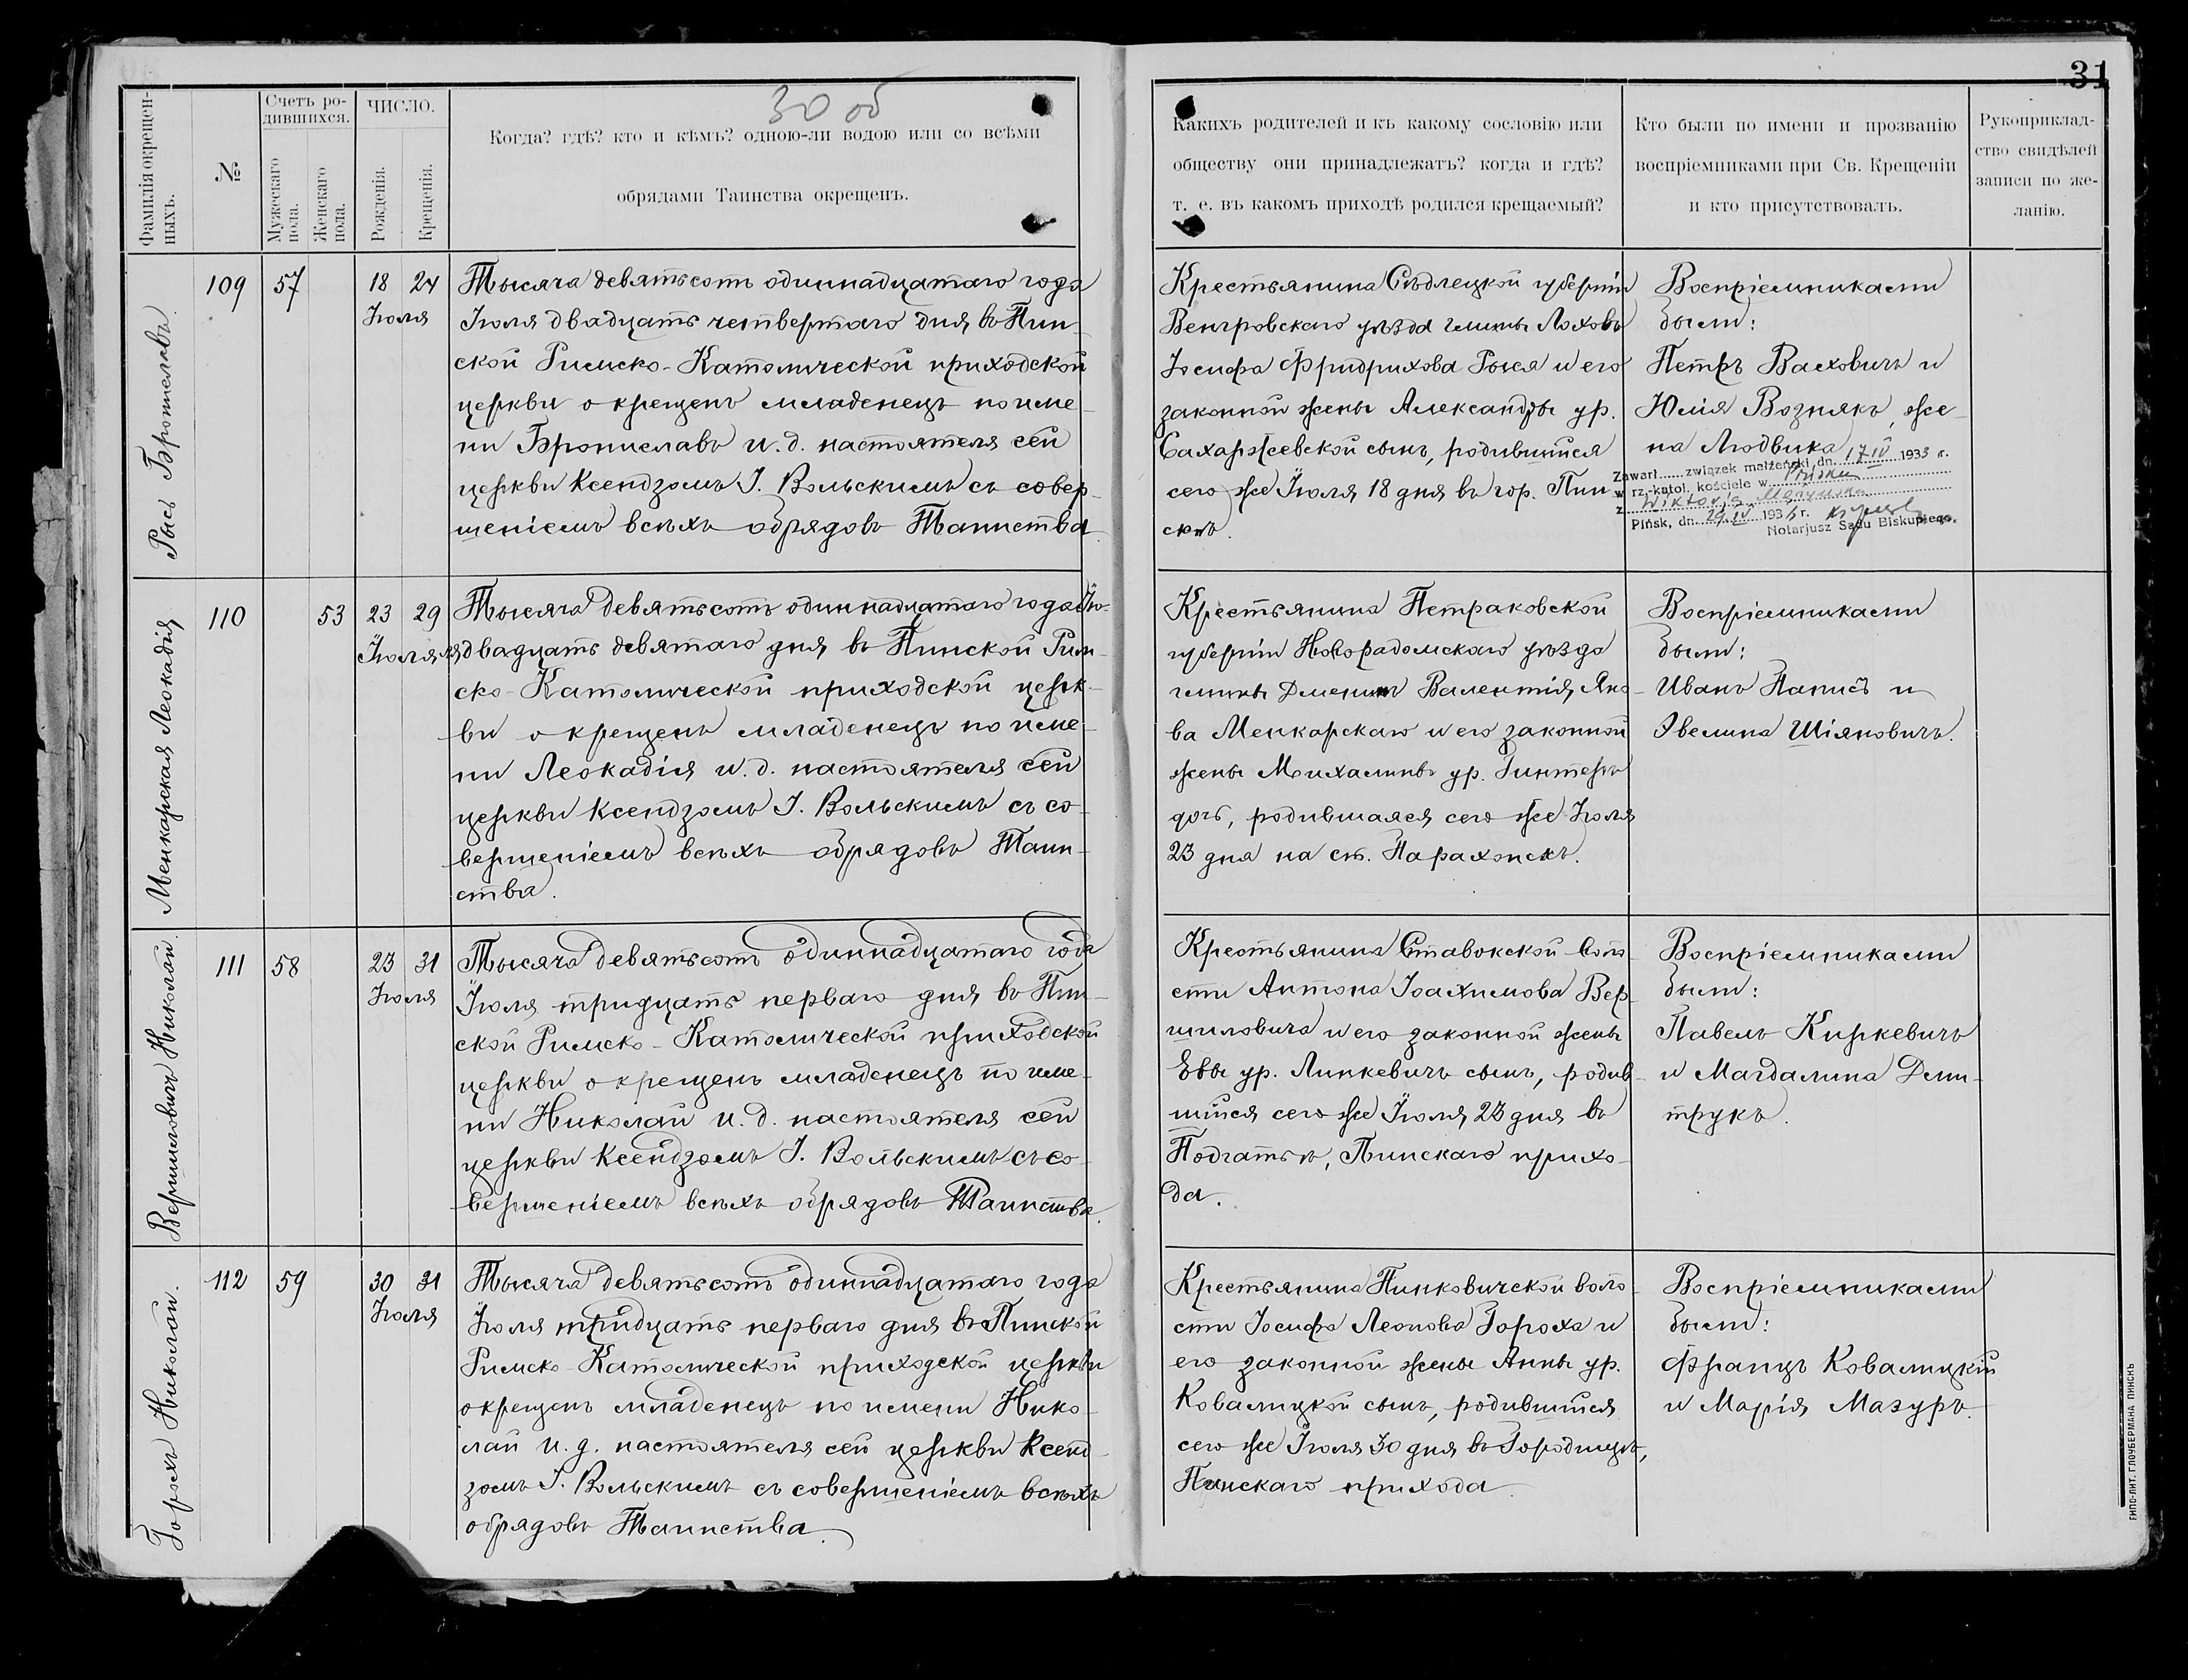 31
30 об
Фамилія окрещен-
ныхъ.
№
Счетъ ро-
дившихся.
Мужескаго
пола.
Женскаго
пола.
ЧИСЛО.
Рожденія.
Крещенія.
Когда? гдѣ? кто и кѣмъ? одною-ли водою или со всѣми
обрядами Таинства окрещенъ.
Какихъ родителей и къ какому сословію или
обществу они принадлежатъ? когда и гдѣ?
т. е. въ какомъ приходѣ родился крещаемый?
Кто были по имени и прозванію
воспріемниками при Св. Крещеніи
и кто присутствовалъ.
Рукоприклад-
ство свидѣлей
записи по же-
ланію.
Рысь Брониславъ
109 57 18 24
Іюля
Тысяча девятьсотъ одиннадцатаго года
Іюля двадцать четвертаго дня въ Пин-
ской Римско-Католической приходской
церкви окрещенъ младенецъ по име-
ни Брониславъ и. д. настоятеля сей
церкви Ксендзомъ І. Вольскимъ съ совер-
шеніемъ всѣхъ обрядовъ Таинства.
Крестьянина Сѣдлецкой губерніи
Венгровскаго уѣзда гмины Лоховъ
Іосифа Фридрихова Рыся и его
законной жены Александры ур.
Сахаржевской сынъ, родившійся
сего же Іюля 18 дня въ гор. Пин-
скѣ.
Воспріемниками
были:
ПетръВаховичъ и
Юлія Вознякъ, же-
на Людвика
Zawarł związek małżeński dn. 17 IV 1933 r.
w rz.-katol. kościele w Pińsku
z Wiktorją
Pińsk, dn. 29 IV 193 r.
Notarjusz Sądu Biskupiego.
Менкарская Леокадія
110 53 23 29
Іюля
Тысяча девятьсотъ одиннадцатаго года Ію-
ля двадцать девятаго дня въ Пинской Рим-
ско-Католической приходской церк-
ви окрещенъ младенецъ по име-
ни Леокадія и. д. настоятеля сей
церкви Ксендзомъ І. Вольскимъ съ со-
вершеніемъ всѣхъ обрядовъ Таин-
ства.
Крестьянина Петраковской
губерніи Новорадомскаго уѣзда
гмины Дменинъ Валентія Яко-
ва Менкарскаго и его законной
жены Михалины ур. Гинтеръ
дочь, родившаяся сего же Іюля
23 дня на ст. Парахонскъ.
Воспріемниками
были:
Иванъ Паписъ и
Эвелина Шіяновичъ.
Вершиловичъ Николай.
111 58 23 31
Іюля
Тысяча девятьсотъ одиннадцатаго года
Іюля тридцать перваго дня въ Пин-
ской Римско-Католической приходской
церкви окрещенъ младенецъ по име-
ни Николай и. д. настоятеля сей
церкви Ксендзомъ І. Вольскимъ съ со-
вершеніемъ всѣхъ обрядовъ Таинства.
Крестьянина Ставокской воло-
сти Антона Іоахимова Вер-
шиловича и его законной жены
Евы ур. Линкевичъ сынъ, родив-
шійся сего же Іюля 23 дня въ
Подгатьѣ, Пинскаго прихо-
да.
Воспріемниками
были:
Павелъ Киркевичъ
и Магдалина Дми-
трукъ.
Горохъ Николай.
112 59 30 31
Іюля
Тысяча девятьсотъ одиннадцатаго года
Іюля тридцать перваго дня въ Пинской
Римско-Католической приходской церкви
окрещенъ младенецъ по имени Нико-
лай и. д. настоятеля сей церкви Ксенд-
зомъ І. Вольскимъ съ совершеніемъ всѣхъ
обрядовъ Таинства.
Крестьянина Пинковичской воло-
сти Іосифа Леонова Гороха и
его законной жены Анны ур.
Ковалицкой сынъ, родившійся
сего же Іюля 30 дня въ Городищѣ,
Пинскаго прихода.
Воспріемниками
были:
Францъ Ковалицкій
и Марія Мазуръ.
ТИПО-ЛИТ. ГЛОУБЕРМАНА ПИНСКЪ